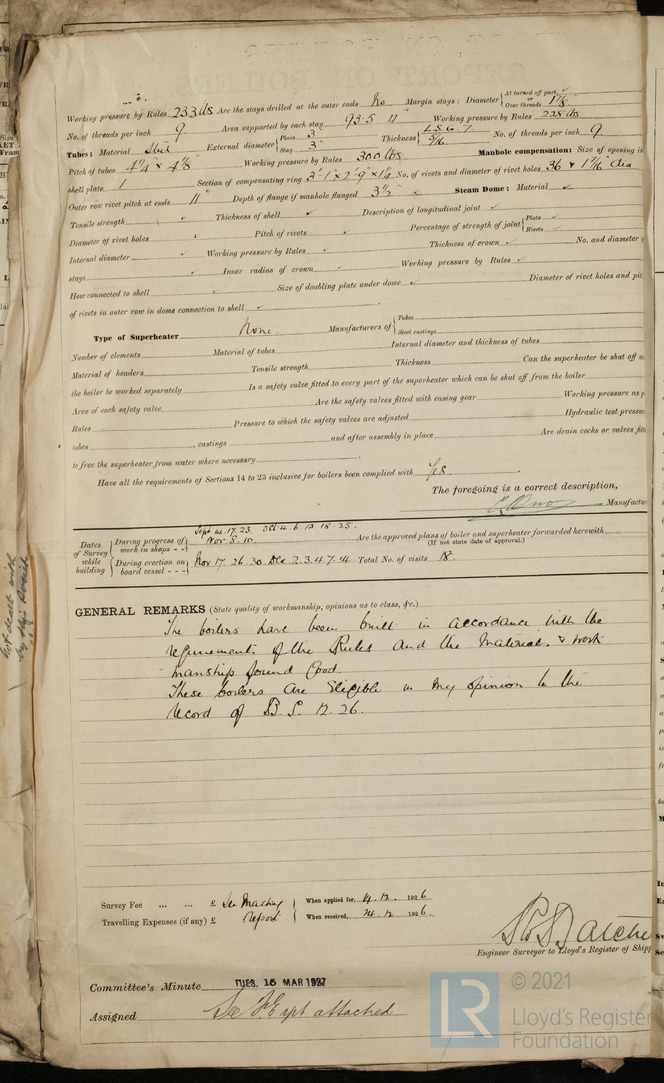 Working pressure by Rules 233 lbs Are the stays drilled at the outer ends No Margin stays: Diameter { At turned off part ✓ or Over threads 1 7/8"
No. of threads per inch 9 Area supported by each stay 93.5 □" Working pressure by Rules 228 lbs
Tubes: Material Steel External diameter { Plain 3" Stay 3" Thickness { L.S.G. 7 5/16 No. of threads per inch 9
Pitch of tubes 4 1/4" x 4 1/8" Working pressure by Rules 300 lbs Manhole compensation: Size of opening in
shell plate Section of compensating ring 3'-1" x 2'-9" x 1 1/4 No. of rivets and diameter of rivet holes 36 & 1 1/16" dia
Outer row rivet pitch at ends 11" Depth of flange if manhole flanged 3 1/2" Steam Dome: Material ✓
Tensile strength ✓ Thickness of shell ✓ Description of longitudinal joint ✓
Diameter of rivet holes ✓ Pitch of rivets ✓ Percentage of strength of joint { Plate ✓ Rivets ✓
Internal diameter ✓ Working pressure by Rules ✓ Thickness of crown ✓ No. and diameter
stays ✓ Inner radius of crown ✓ Working pressure by Rules ✓
How connected to shell ✓ Size of doubling plate under dome ✓ Diameter of rivet holes and
of rivets in outer row in dome connection to shell ✓
Type of Superheater None. Manufacturers of { Tubes Steel castings
Number of elements Material of tubes Internal diameter and thickness of tubes
Material of headers Tensile strength Thickness Can the superheater be shut off
the boiler be worked separately Is a safety valve fitted to every part of the superheater which can be shut off from the boiler
Area of each safety valve Are the safety valves fitted with easing gear Working pressure as
Rules Pressure to which the safety valves are adjusted Hydraulic test
tubes , castings and after assembly in place Are drain cocks or valves
to free the superheater from water where necessary
Have all the requirements of Sections 14 to 23 inclusive for boilers been complied with Yes
The foregoing is a correct description,
Manufactur
Dates of Survey while building { During progress of work in shops - - } Sept 14. 17. 23. Oct 4. 6. 12. 18. 25. Nov 5. 10. Are the approved plans of boiler and superheater forwarded herewith
(If not state date of approval.)
{ During erection on board vessel - - - } Nov 17. 26. 30. Dec 2. 3. 4. 7. 14. Total No. of visits 18.
GENERAL REMARKS (State quality of workmanship, opinions as to class, &c.)
The boilers have been built in accordance with the
requirements of the Rules and the Materials & work
manship found Good
These boilers are Eligible in my opinion to the
record of B.S. 12.26.
Survey Fee ... ... £ See Machy When applied for, 4.12. 1926
Travelling Expenses (if any) £ Report When received, 24.12. 1926.
Engineer Surveyor to Lloyd's Register of Shipp
Committee's Minute TUES. 15 MAR 1927
Assigned See F.E. rpt attached
Not dealt with
© 2021
LR
Lloyd's Register
Foundation